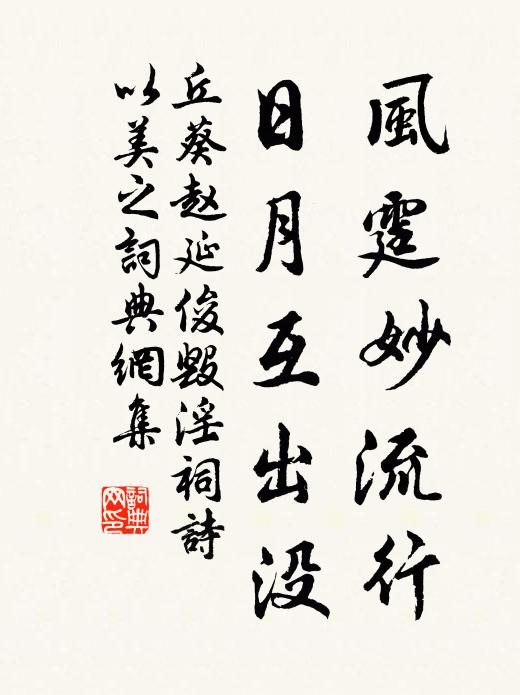 風霆妙流行
日月互出没
丘葵赵延俊毁淫祠詩
以美之詞典網集
詞典网印